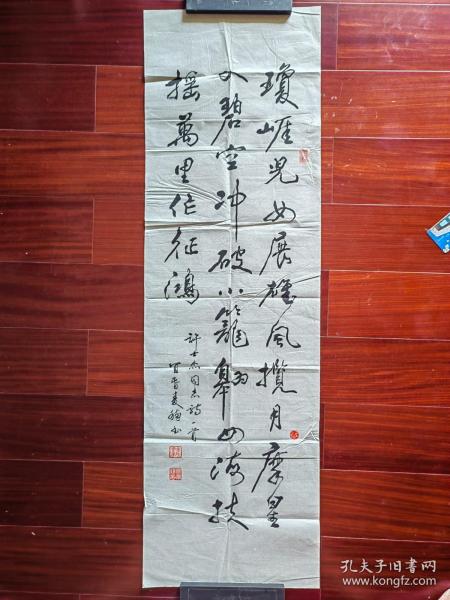 瓊崕兒女展雄風攬月摩星
入碧空冲破小籠翱四海扶
摇萬里作征鴻
許士杰同志詩一首
书
孔夫子旧书网
www.kongfz.com